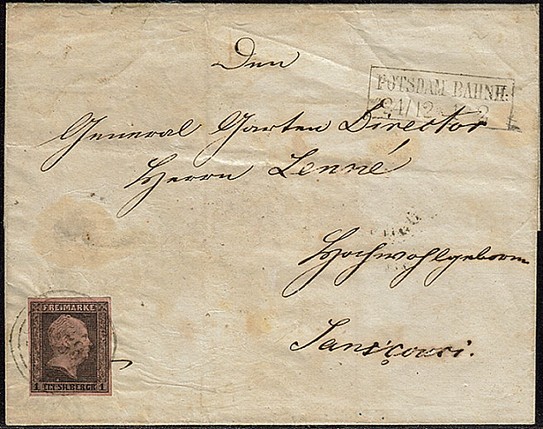 Den
POTSDAM BAHNH:
21/12 * 2
General Garten Director
Herrn Lenné
Hochwohlgeborn
Sanscouci.
FREIMARKE
1 SILBERGR. 1